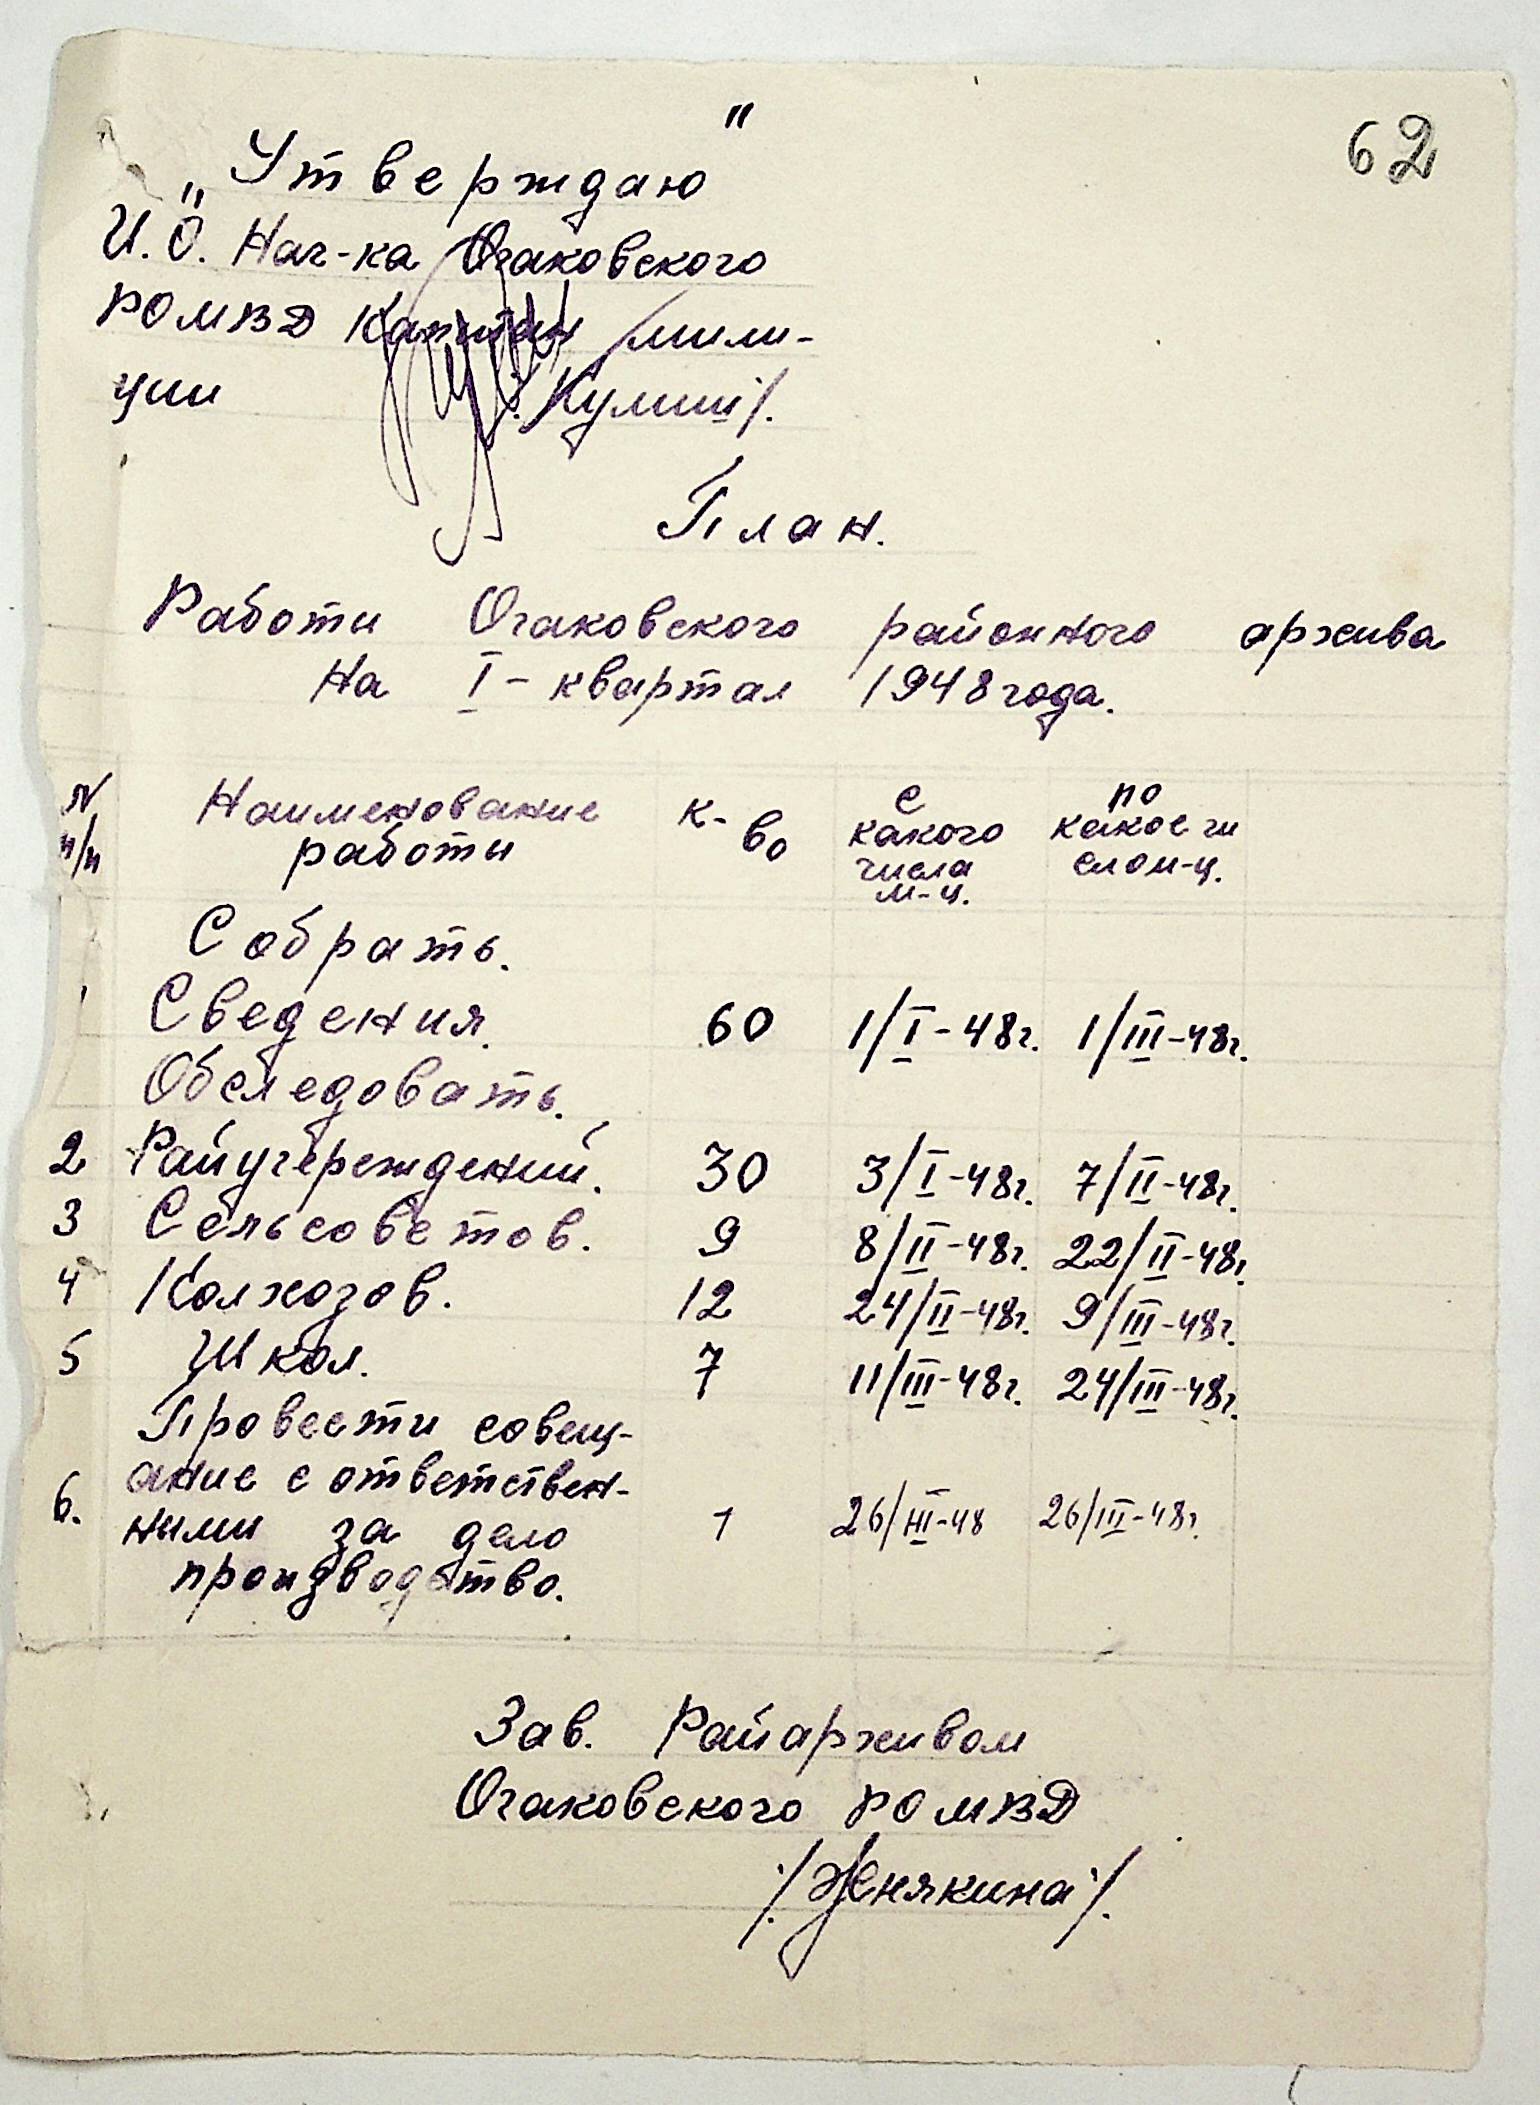 62
„Утверждаю"
И.О. Нач-ка Очаковского
РОМВД Капитан мили-
ции /Кулиш/.
План.
Работи Очаковского районного архива
На I - квартал 1948 года.
N п/п Наименование работи к-во с какого числа м-ц. по какое число м-ц.
Собрать.
1 Сведения. 60 1/I-48г. 1/III-48г.
Обследовать.
2 Райучереждений. 30 3/I-48г. 7/II-48г.
3 Сельсоветов. 9 8/II-48г. 22/II-48г.
4 Колхозов. 12 24/II-48г. 9/III-48г.
5 Школ. 7 11/III-48г. 24/III-48г.
Провести совещ-
ание с ответствен-
6. ними за дело 1 26/III-48 26/III-48г.
производство.
Зав. Райархивом
Очаковского РОМВД
/Женякина/.